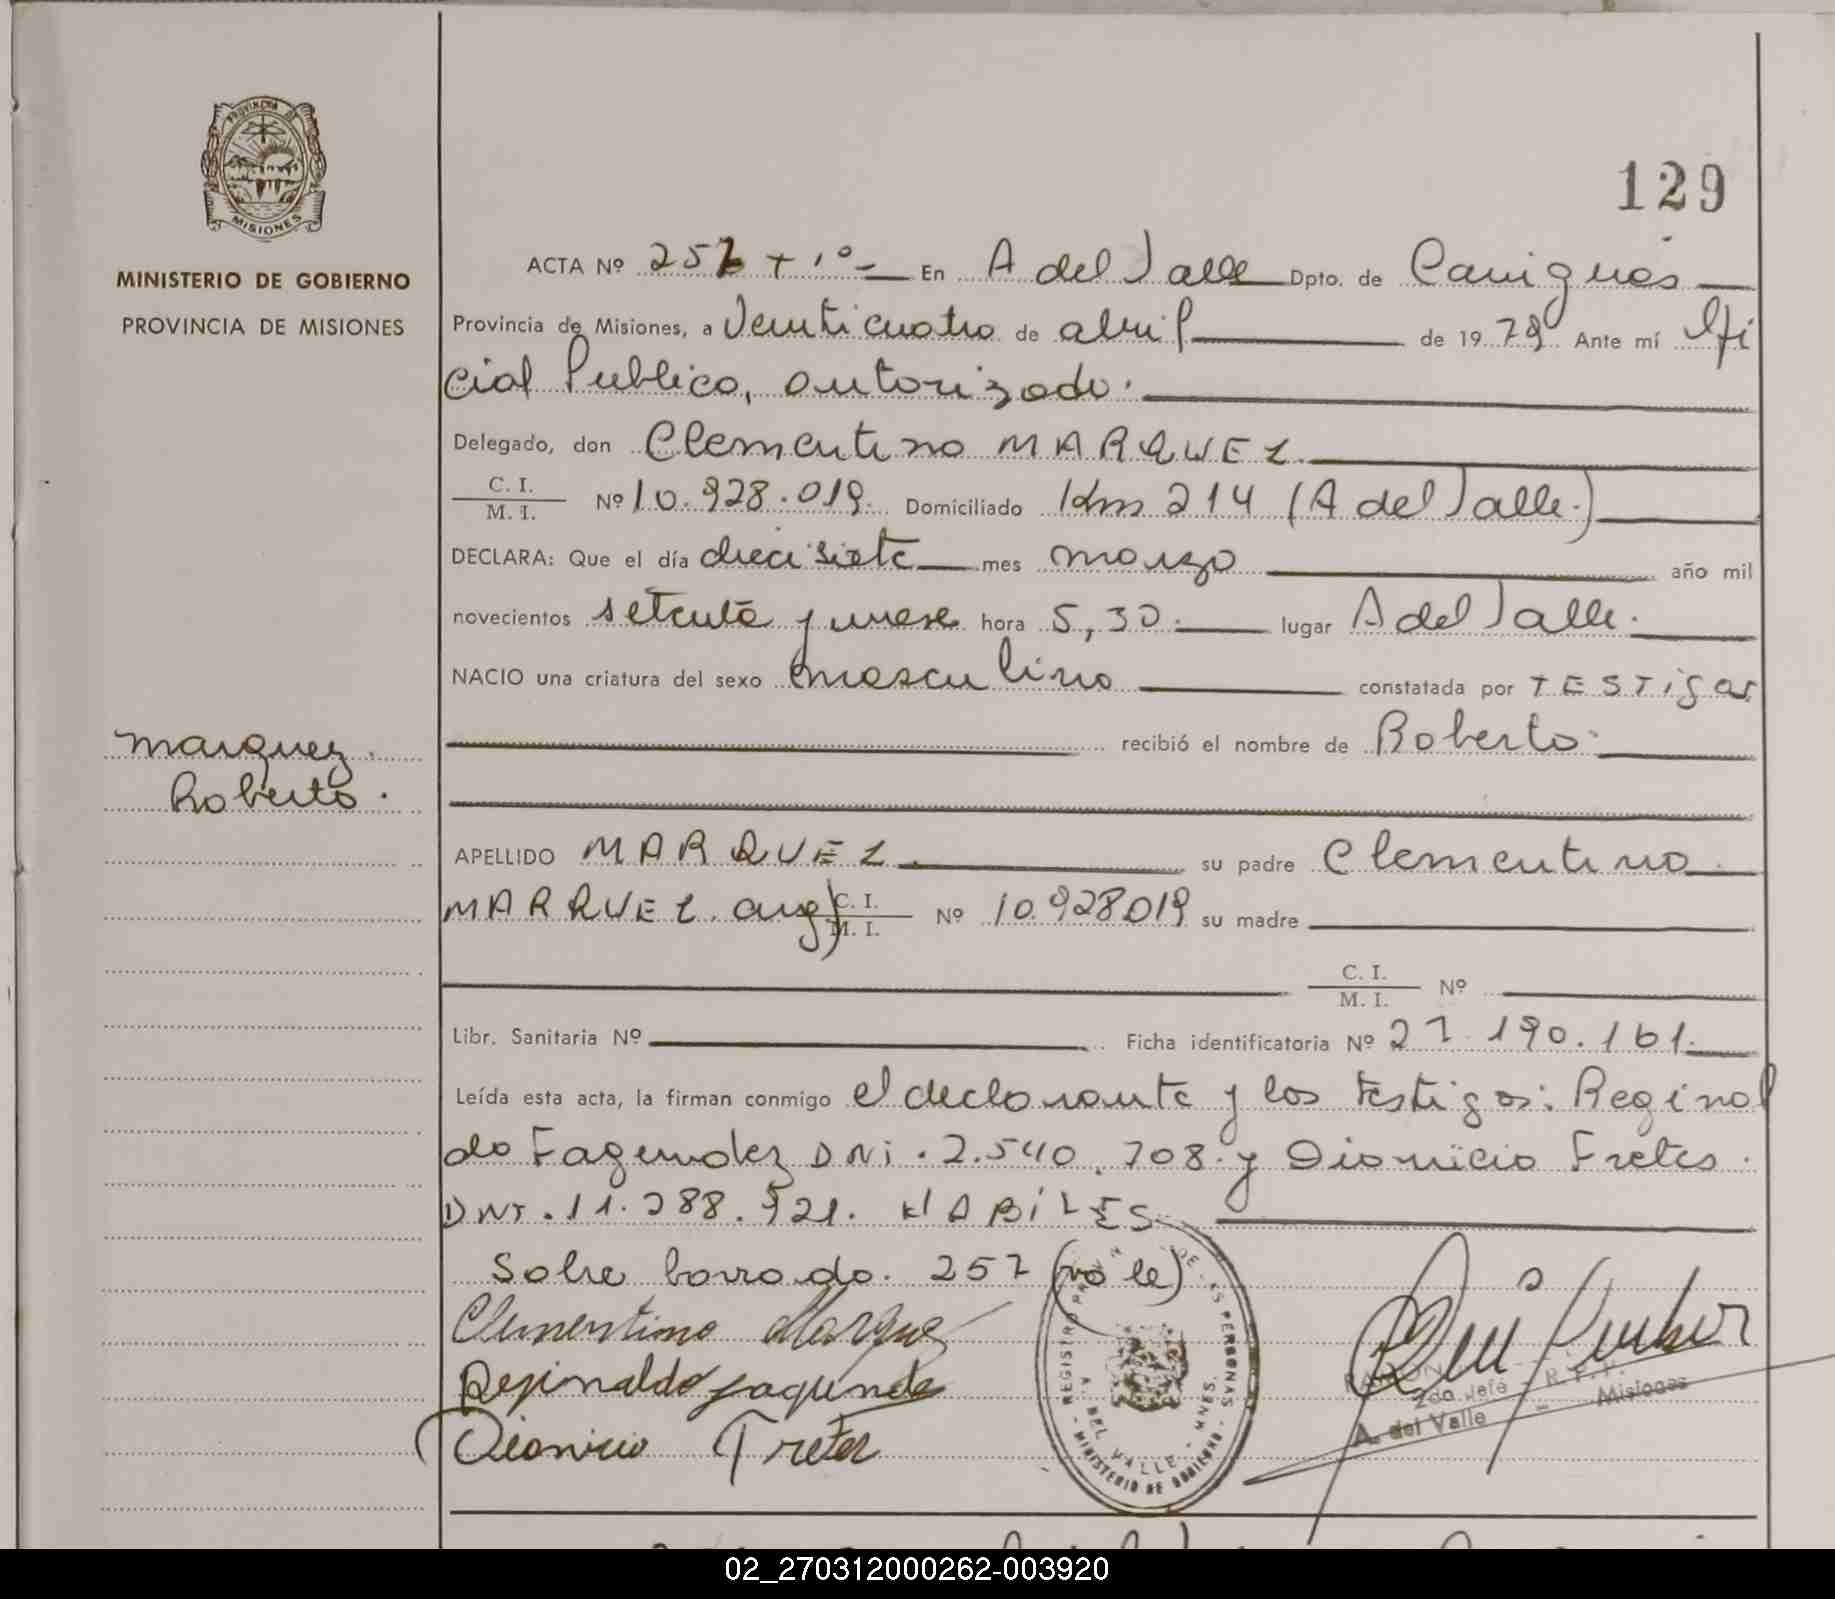 PROVINCIA DE
MISIONES
MINISTERIO DE GOBIERNO
PROVINCIA DE MISIONES
129
ACTA Nº 257 + 1º - En A del Valle Dpto. de Cainguas
Provincia de Misiones, a Veinticuatro de abril de 1979 Ante mí Ofi
cial Publico, autorizado.
Delegado, don Clementino MARQUEZ
C. I. / M. I. Nº 10.928.019. Domiciliado Km 214 (A del Valle.)
DECLARA: Que el día diecisiete mes marzo año mil
novecientos setenta y nueve hora 5,30. lugar A del Valle.
NACIO una criatura del sexo masculino constatada por TESTigos
recibió el nombre de Roberto.
Marquez.
Roberto.
APELLIDO MARQUEZ. su padre Clementino
MARQUEZ. arg) C. I. / M. I. Nº 10.928019 su madre
C. I. / M. I. Nº
Libr. Sanitaria Nº Ficha identificatoria Nº 27.190.161.
Leída esta acta, la firman conmigo el declarante y los testigos: Reginal
do Fagundez DNi. 2.540.708. y Dionicio Fretes.
DNI. 11.288.921. HABiLES
Sobre borrado. 257 (vale)
Clementino Marquez
Reginaldo Fagundez
Dionicio Fretes
REGISTRO DE LAS PERSONAS
A. DEL VALLE - MNES.
MINISTERIO DE GOBIERNO
2do. Jefe - R.P.P.
A. del Valle - Misiones
02_270312000262-003920